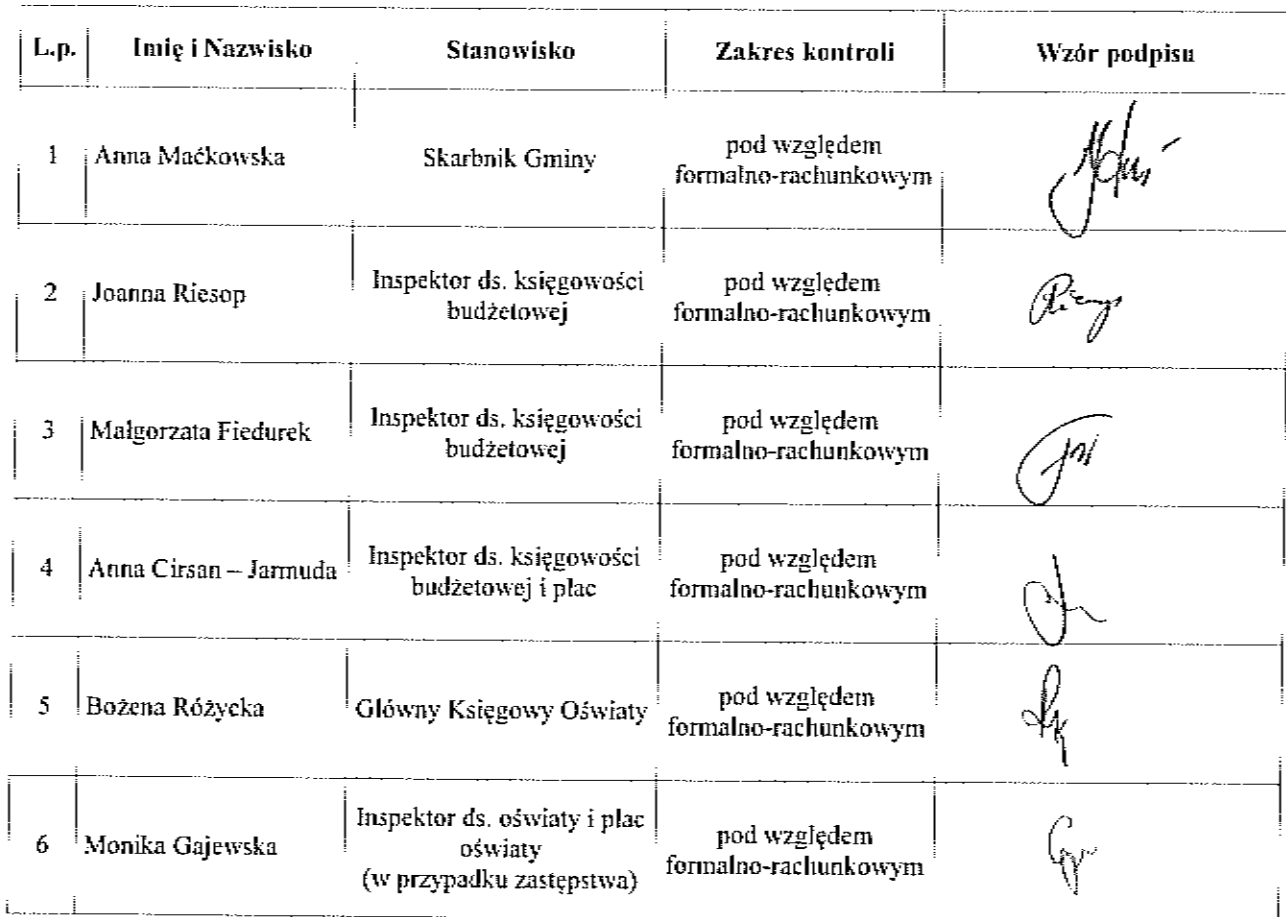 L.p. Imię i Nazwisko Stanowisko Zakres kontroli Wzór podpisu
1 Anna Maćkowska Skarbnik Gminy pod względem
formalno-rachunkowym
2 Joanna Riesop Inspektor ds. księgowości
budżetowej pod względem
formalno-rachunkowym
3 Małgorzata Fiedurek Inspektor ds. księgowości
budżetowej pod względem
formalno-rachunkowym
4 Anna Cirsan – Jarmuda Inspektor ds. księgowości
budżetowej i płac pod względem
formalno-rachunkowym
5 Bożena Różycka Główny Księgowy Oświaty pod względem
formalno-rachunkowym
6 Monika Gajewska Inspektor ds. oświaty i płac
oświaty
(w przypadku zastępstwa) pod względem
formalno-rachunkowym